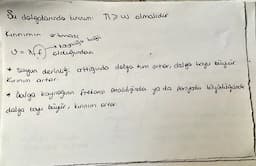 Su dalgalarında kırınım λ ≥ w olmalıdır
Kırınımın artması
v = λ f → kaynağa bağlı
olduğundan
* Suyun derinliği arttığında dalga hızı artar, dalga boyu büyür
kırınım artar.
* Dalga kaynağının frekansı azaldığında ya da periyodu büyüdüğünde
dalga boyu büyür, kırınım artar.